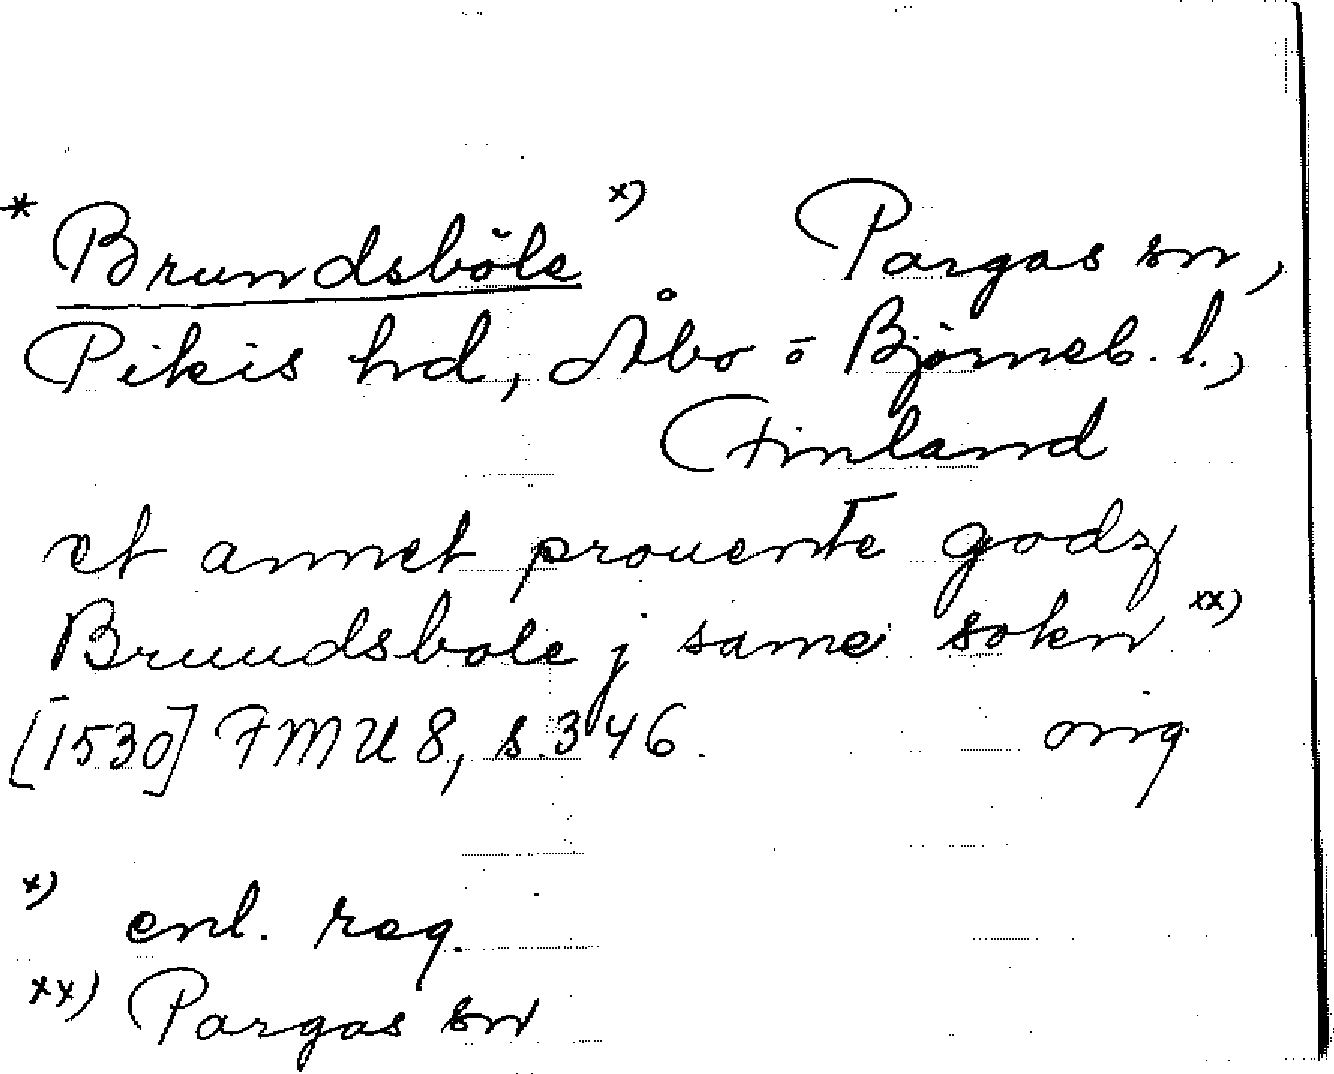 * Brundsböle x) Pargas sn,
Pikis hd, Åbo o Björneb. l.,
Finland
et annet prouente godz
Bruudsbole j same sokn xx)
[1530] FMU 8, s. 346. orig
x) enl. reg.
xx) Pargas sn